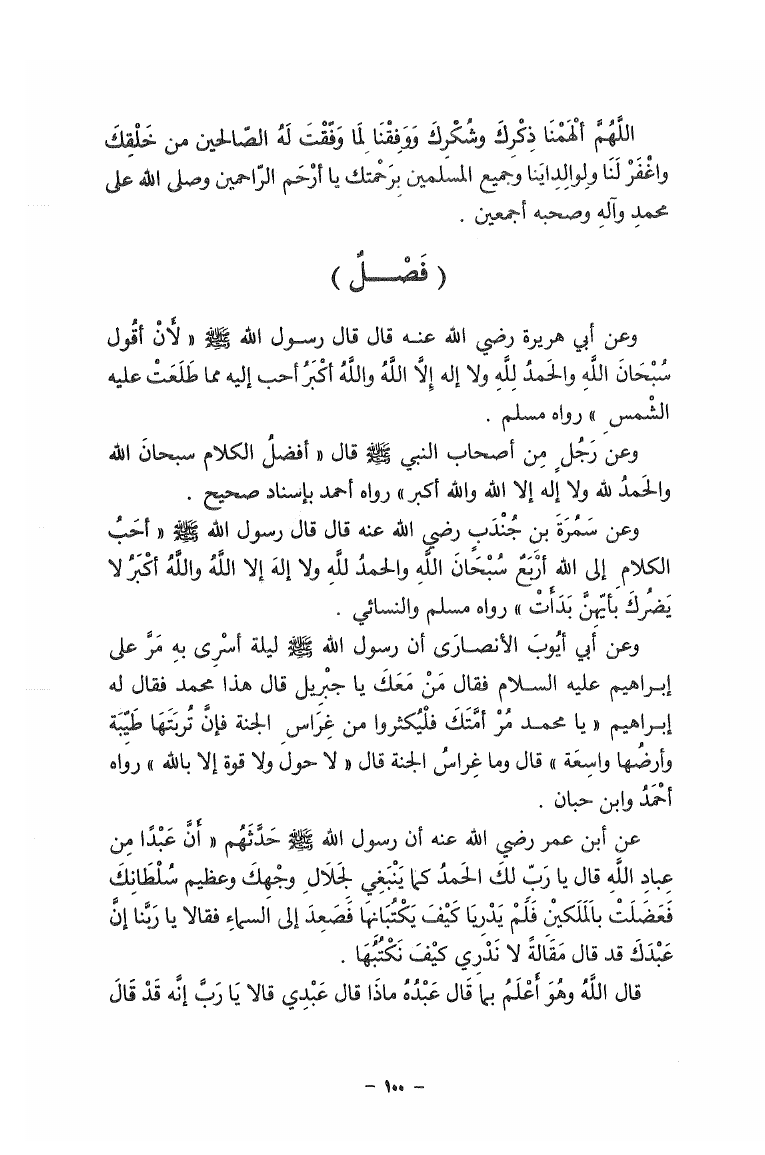 اللَّهُمَّ أَلْهَمْنَا ذِكْرَكَ وشُكْرِكَ وَوَفِقْنَا لَمَا وَفّقْتَ لَهُ الصّالحين من خَلْقِكَ
واغْفَرْ لَنَا ولوالِداَيَنا وجميع المسلمين بِرَحْمتك يا أرْحَم الرّاحمين وصلى الله على
محمدٍ وآلهِ وصحبه أجمعين .
( فَصْــلٌ )
وعن أبي هريرة رضي الله عنه قال قال رسول الله ﷺ « لَأَنْ أقُول
سُبْحَانَ اللَّهِ والحَمدُ لِلَّهِ ولا إله إِلَّا اللَّهُ واللَّهُ أكْبَرُ أحب إليه مما طَلَعَتْ عليه
الشْمس » رواه مسلم .
وعن رَجُلٍ مِن أصحاب النبي ﷺ قال « أفضلُ الكلام سبحانَ الله
والحَمدُ لله ولا إله إلا الله والله أكبر » رواه أحمد بإسناد صحيح .
وعن سَمُرَةَ بن جُنْدَبٍ رضي الله عنه قال قال رسول الله ﷺ « أحَبُ
الكلامِ إلى الله أرْبَعٌ سُبْحَانَ اللَّهِ والحمدُ للَّهِ ولا إلهَ إلا اللَّهُ واللَّهُ أكْبَرُ لا
يَضُركَ بأيّهِنَّ بَدَأَتْ » رواه مسلم والنسائي .
وعن أبي أيُوبَ الأنصارَى أن رسول الله ﷺ ليلة أسْرِى به مَرَّ على
إبراهيم عليه السلام فقال مَنْ مَعَكَ يا جبْرِيل قال هذا محمد فقال له
إبراهيم « يا محمد مُرْ أمَّتَكَ فلْيُكثروا من غِرَاسِ الجنة فإنَّ تُربَتَهَا طَيّبَة
وأرضُها واسِعَة » قال وما غِراسُ الجنة قال « لا حول ولا قوة إلا بالله » رواه
أحْمَدُ وابن حبان .
عن أبن عمر رضي الله عنه أن رسول الله ﷺ حَدَّثَهُم « أنَّ عَبْدًا مِن
عِبادِ اللَّهِ قال يا رَبّ لكَ الحَمدُ كما يَنْبَغِي لجَلالِ وجْهِكَ وعظيمِ سُلْطَانِكَ
فَعَضَلَتْ بالَمَلَكينْ فَلَمْ يَدْرِيَا كَيْفَ يَكْتُبَانهَا فَصَعِدَ إلى السماءِ فقالا يا رَبَّنا إنَّ
عَبْدَكَ قد قال مَقَالةً لا نَدْرِي كيْفَ نَكْتُبُهَا .
قال اللَّهُ وهُوَ أَعْلَمُ بما قَال عَبْدُهُ ماذَا قال عَبْدِي قالا يَا رَبَّ إنَّه قَدْ قَالَ
- ١٠٠ -